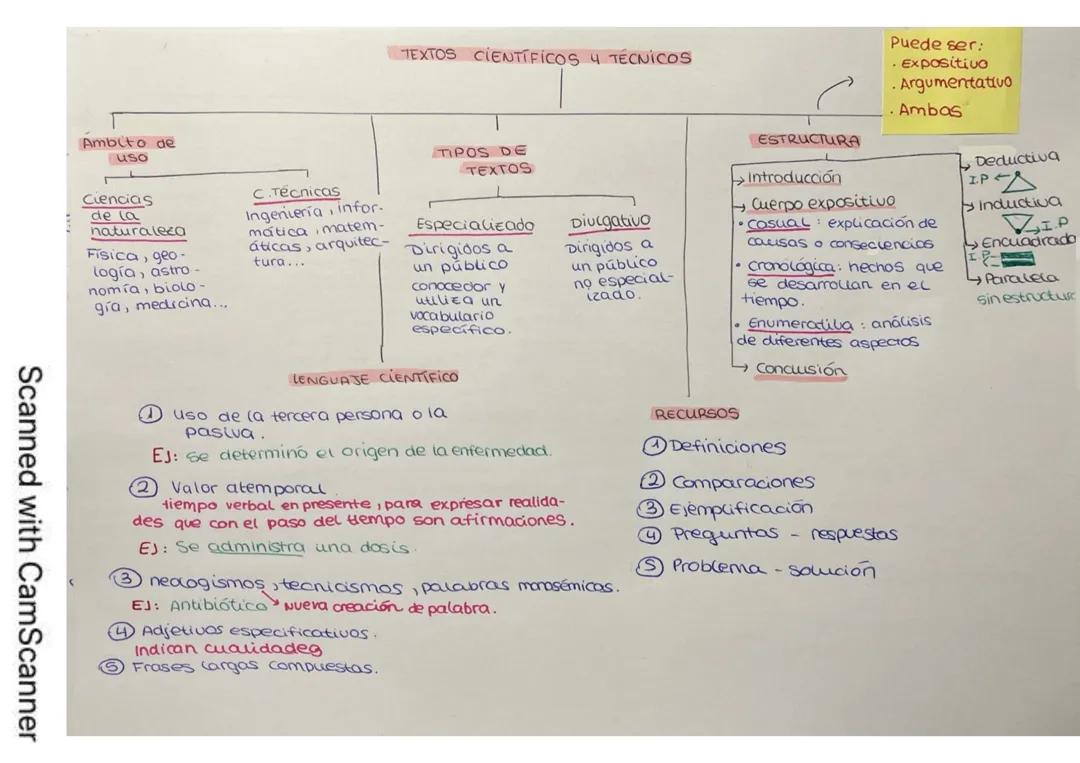 TEXTOS CIENTÍFICOS Y TÉCNICOS
Puede ser:
· Expositivo
· Argumentativo
· Ambas
Ámbito de
uso
Ciencias
de la
naturaleza
Física, geo-
logía, astro-
nomía, biolo-
gía, medicina...
C. Técnicas
Ingeniería, infor-
mática, matem-
áticas, arquitec-
tura...
TIPOS DE
TEXTOS
Especializado
Dirigidos a
un público
conocedor y
utiliza un
vocabulario
específico.
Divulgativo
Dirigidos a
un público
no especial-
izado.
ESTRUCTURA
→ Introducción
→ Cuerpo expositivo
· Casual: explicación de
causas o consecuencias
· Cronológica: hechos que
se desarrollan en el
tiempo.
· Enumerativa: análisis
de diferentes aspectos
→ Conclusión
→ Deductiva
I.P ←
→ Inductiva
→ I.P
→ Encuadrado
I.P
→ Paralela
sin estructur
LENGUAJE CIENTÍFICO
① Uso de la tercera persona o la
pasiva.
EJ: Se determinó el origen de la enfermedad.
② Valor atemporal.
tiempo verbal en presente, para expresar realida-
des que con el paso del tiempo son afirmaciones.
EJ: Se administra una dosis.
③ neologismos, tecnicismos, palabras monosémicas.
EJ: Antibiótico → Nueva creación de palabra.
④ Adjetivos especificativos.
Indican cualidades
⑤ Frases largas compuestas.
RECURSOS
① Definiciones
② Comparaciones
③ Ejemplificación
④ Preguntas - respuestas
⑤ Problema - solución
Scanned with CamScanner